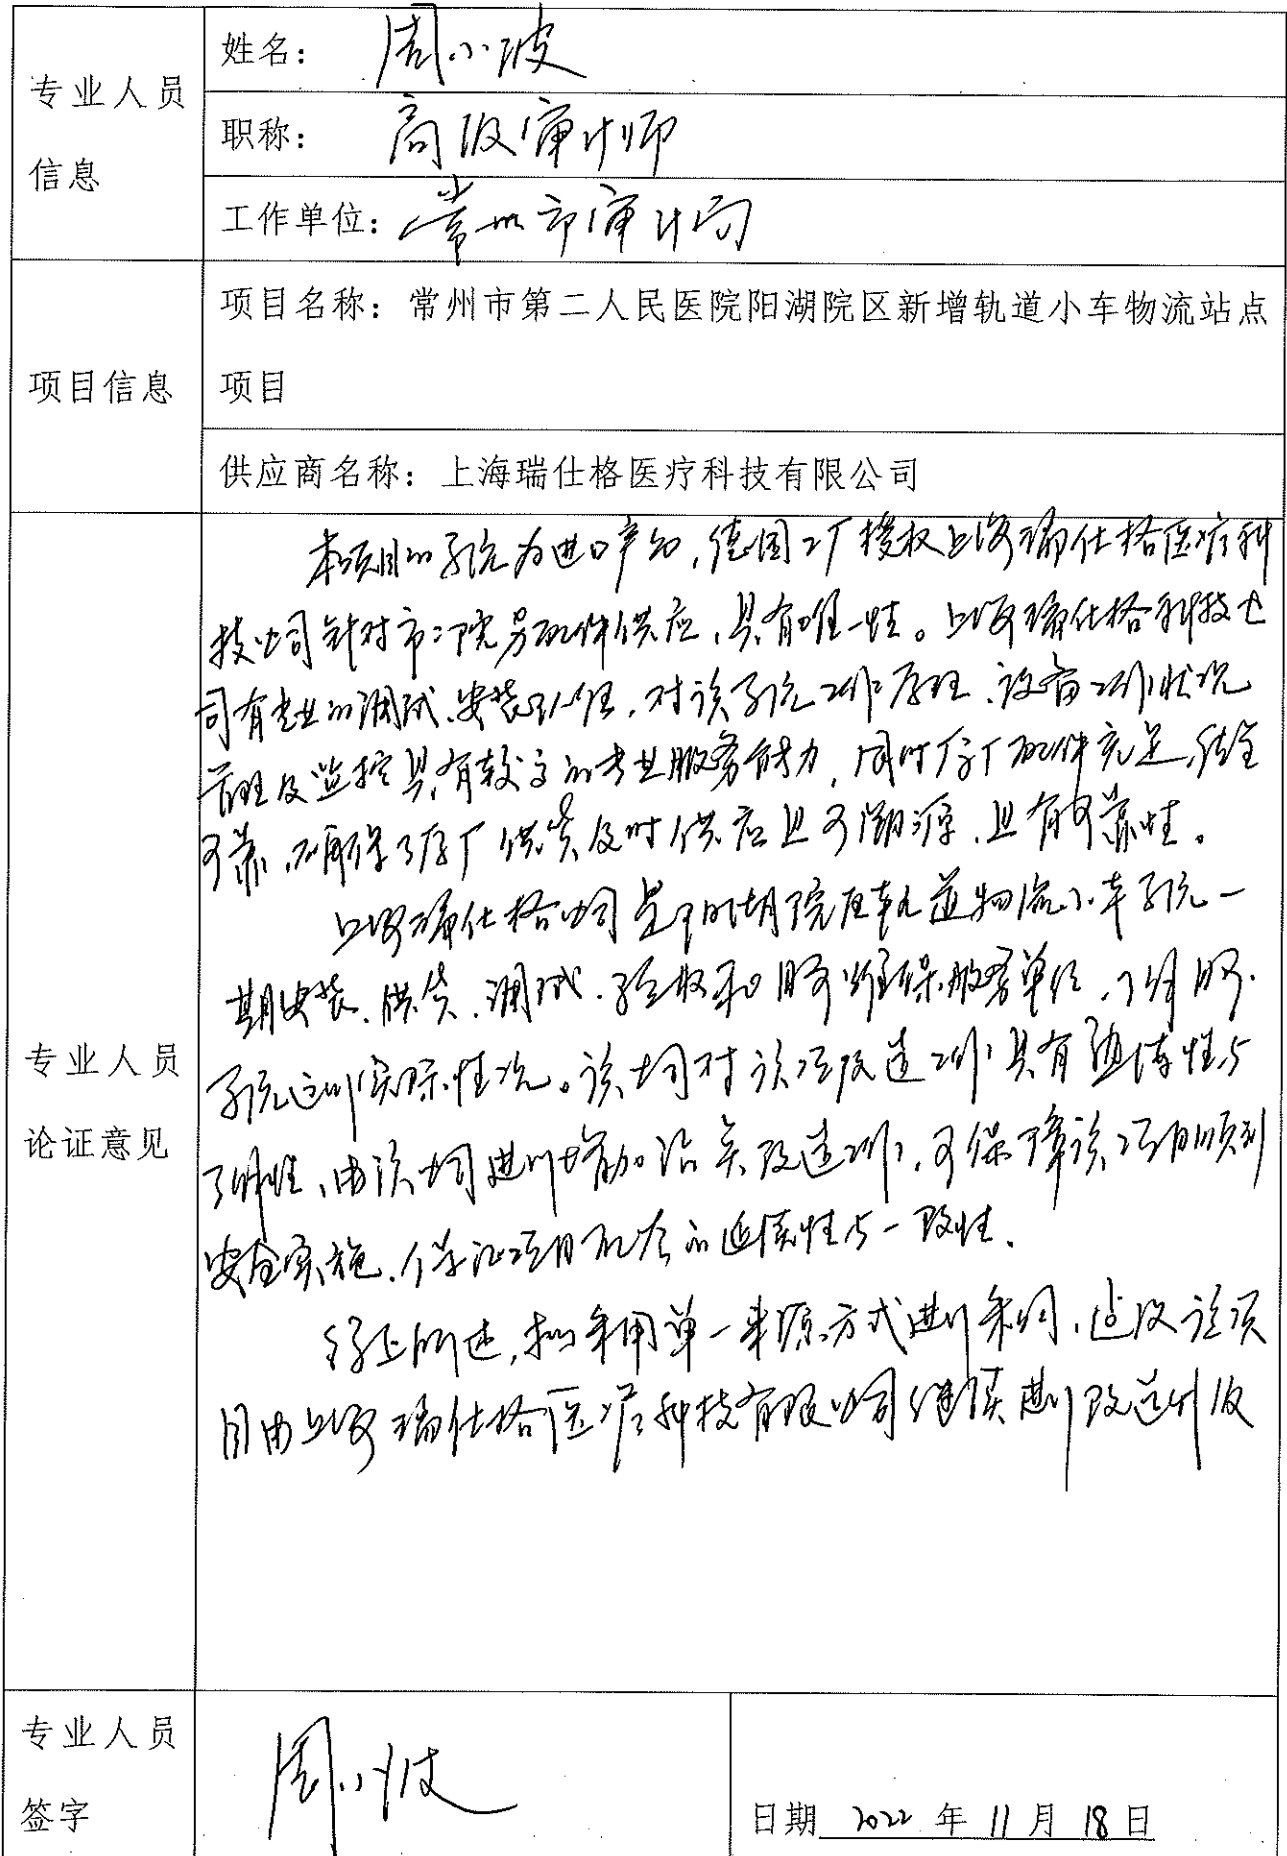 专业人员
信息
姓名：周小波
职称：高级审计师
工作单位：常州市审计局
项目信息
项目名称：常州市第二人民医院阳湖院区新增轨道小车物流站点
项目
供应商名称：上海瑞仕格医疗科技有限公司
专业人员
论证意见
本项目的系统为进口产品，德国工厂授权上海瑞仕格医疗科
技公司针对市二院另配件供应，具有唯一性。上海瑞仕格科技公
司有专业的调试、安装队伍，对该系统工作原理、设备工作状况
管理及监控具有较高的专业服务能力，同时原厂配件充足，安全
可靠，确保了原厂供货及时供应且可溯源，具有可靠性。
上海瑞仕格公司是阳湖院区轨道物流小车系统一
期安装、供货、调试、验收和服务维保服务单位，了解
系统运行实际性况。该公司对该项改造工作具有延续性与
了解性，由该公司进行增加站点改造工作，可保障该项目顺利
安全实施，保证项目配套的延续性与一致性。
综上所述，拟采用单一来源方式进行采购，建议该项
目由上海瑞仕格医疗科技有限公司继续进行改造升级
专业人员
签字
周小波
日期 2022 年 11 月 18 日